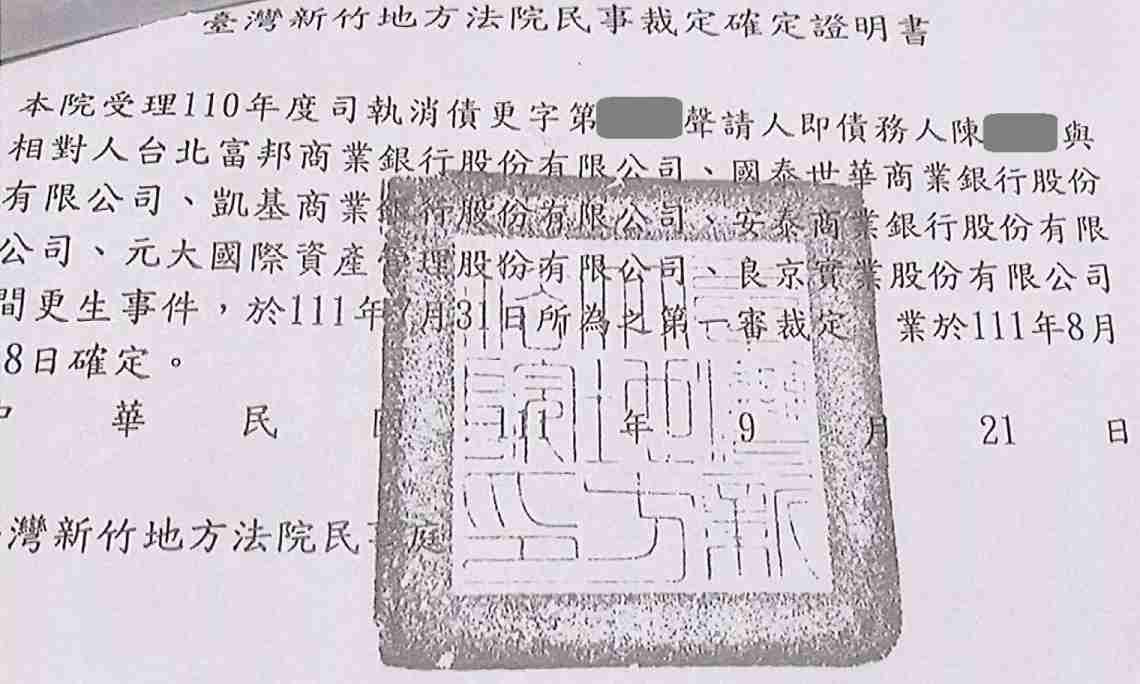 臺灣新竹地方法院民事裁定確定證明書
本院受理110年度司執消債更字第 聲請人即債務人陳 與
相對人台北富邦商業銀行股份有限公司、國泰世華商業銀行股份
有限公司、凱基商業銀行股份有限公司、安泰商業銀行股份有限
公司、元大國際資產管理股份有限公司、良京實業股份有限公司
間更生事件,於111年 月31日所為之第一審裁定 業於111年8月
8日確定。
中華民 111年9月21日
灣新竹地方法院民事庭